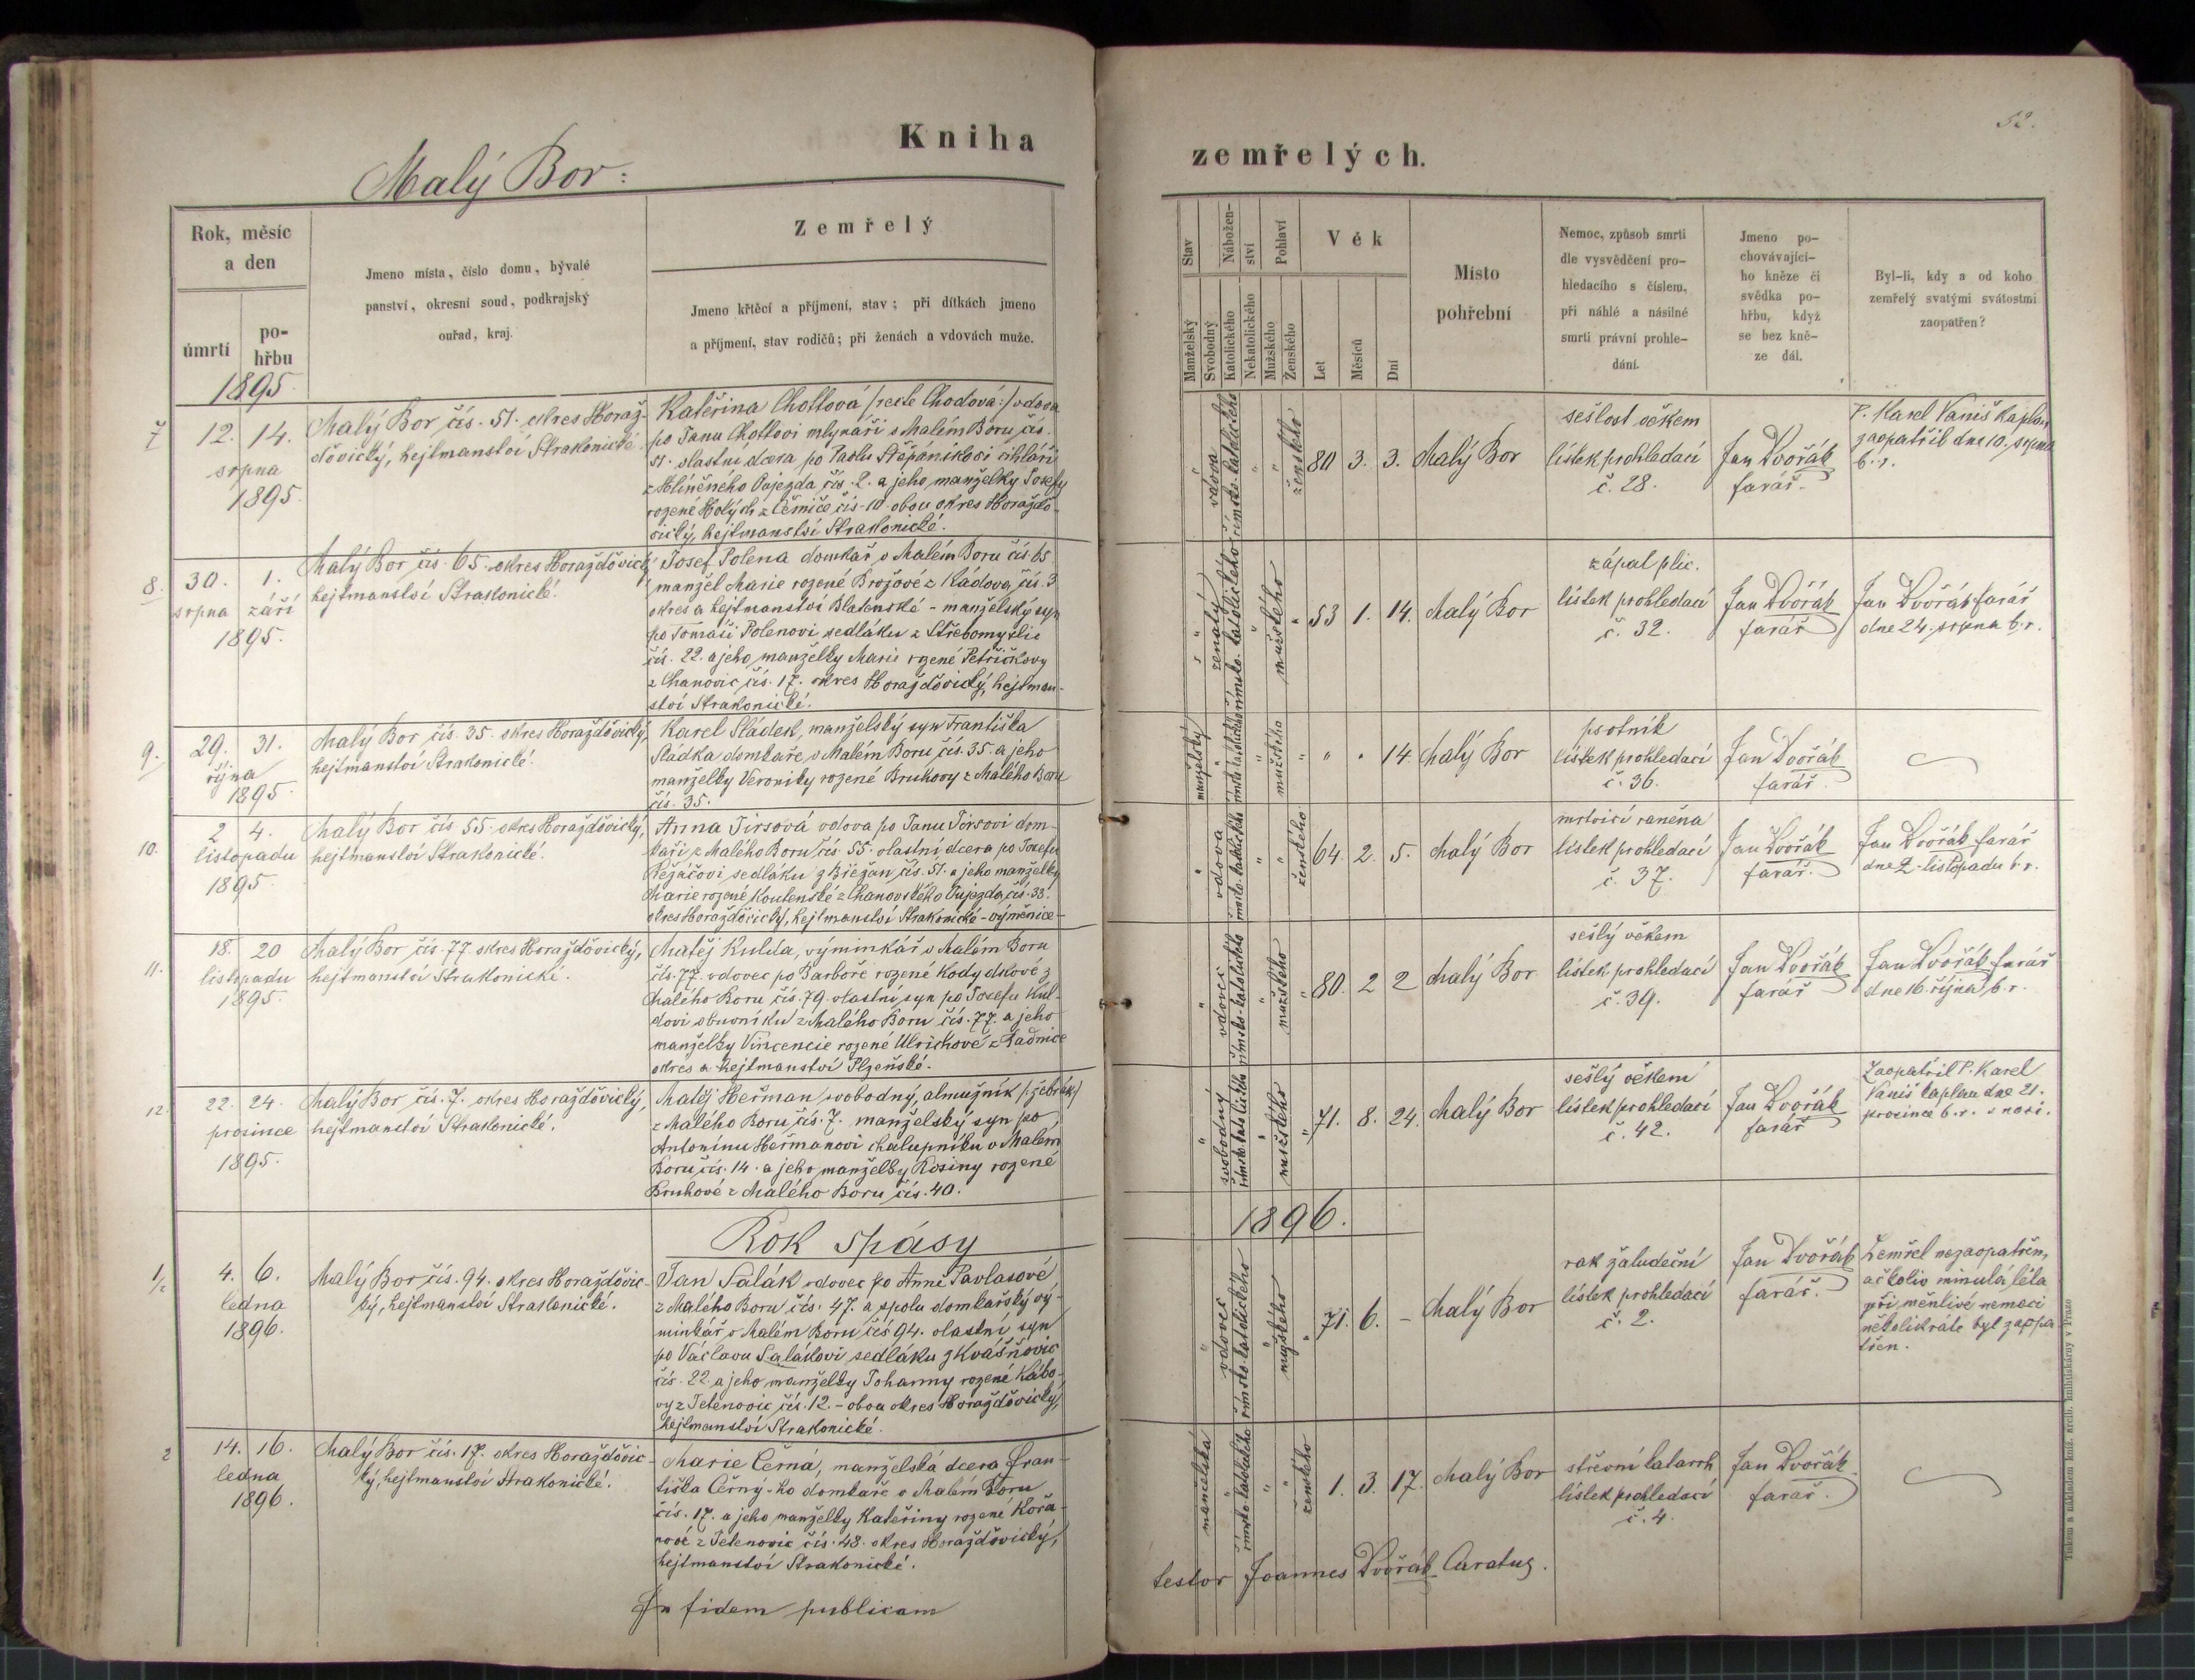 Kniha
zemřelých.
52.
Malý Bor:
Rok, měsíc
a den
úmrtí
po-
hřbu
Jmeno místa, číslo domu, bývalé
panství, okresní soud, podkrajský
ouřad, kraj.
Zemřelý
Jmeno křtěcí a příjmení, stav; při dítkách jmeno
a příjmení, stav rodičů; při ženách a vdovách muže.
Stav
Manželský
Svobodný
Nábožen-
ství
Katolického
Nekatolického
Pohlaví
Mužského
Ženského
Věk
Let
Měsíců
Dní
Místo
pohřební
Nemoc, způsob smrti
dle vysvědčení pro-
hledacího s číslem,
při náhlé a násilné
smrti právní prohle-
dání.
Jmeno po-
chovávající-
ho kněze či
svědka po-
hřbu, když
se bez kně-
ze dál.
Byl-li, kdy a od koho
zemřelý svatými svátostmi
zaopatřen?
1895
7
12. 14.
srpna
1895.
Malý Bor čís. 51. okres Horaž-
ďovický, hejtmanství Strakonické.
Kateřina Chottová (recte Chodová:) vdova
po Janu Chottovi mlynáři v Malém Boru čís.
51. vlastní dcera po Pavlu Štěpánkovi cihláři
z Hlíněného Oujezda čís. 2. a jeho manželky Josefy
rozené Holých z Černíče čís. 10. obou okres Horažďo-
vický, hejtmanství Strakonické.
vdova
římsko-katolického
ženského
80 3. 3.
Malý Bor
sešlost věkem
lístek prohledací
č. 28.
Jan Dvořák
farář.
P. Karel Vaniš kaplan
zaopatřil dne 10. srpna
b. r.
8.
30. 1.
srpna září
1895.
Malý Bor čís. 65. okres Horažďovický
hejtmanství Strakonické.
Josef Polena domkář v Malém Boru čís. 65
manžel Marie rozené Brožové z Kádova, čís. 3
okres a hejtmanství Blatenské - manželský syn
po Tomáši Polenovi sedláku z Střebomyslic
čís. 22. a jeho manželky Marie rozené Petřičkovy
z Chanovic čís. 17. okres Horažďovický, hejtman-
ství Strakonické.
ženatý
římsko-katolického
mužského
53 1. 14.
Malý Bor
zápal plic.
lístek prohledací
č. 32.
Jan Dvořák
farář
Jan Dvořák farář
dne 24. srpna b. r.
9.
29. 31.
října
1895
Malý Bor čís. 35. okres Horažďovický,
hejtmanství Strakonické.
Karel Sládek, manželský syn Františka
Sládka domkaře v Malém Boru čís. 35. a jeho
manželky Veroniky rozené Bruhovy z Malého Boru
čís. 35.
manželský
římsko katolického
mužského
" " 14.
Malý Bor
psotník
lístek prohledací
č. 36.
Jan Dvořák
farář.
10.
2 4.
listopadu
1895.
Malý Bor čís 55. okres Horažďovický,
hejtmanství Strakonické.
Anna Tirsová vdova po Janu Tirsovi dom-
káři z Malého Boru čís. 55. vlastní dcera po Josefu
sedláku z Břežan čís. 51. a jeho manželky
Marie rozené Koutenské z Chanovského Oujezda, čís. 33.
okres Horažďovický, hejtmanství Strakonické - výměnice -
vdova
římsko-katolického
ženského
64. 2. 5.
Malý Bor
mrtvicí raněna
lístek prohledací
č. 37.
Jan Dvořák
farář.
Jan Dvořák farář
dne 2. listopadu b. r.
11.
18. 20
listopadu
1895.
Malý Bor čís. 77. okres Horažďovický,
hejtmanství Strakonické.
Matěj Kulda, výminkář v Malém Boru
čís. 77. vdovec po Barboře rozené Kodydkové z
Malého Boru čís. 79. vlastní syn po Josefu Kul-
dovi obuvníku z Malého Boru čís. 77. a jeho
manželky Vincencie rozené Ulrichové z Radnice
okres a hejtmanství Plzeňské.
vdovec
římsko-katolického
mužského
80. 2 2
Malý Bor
sešlý věkem
lístek prohledací
č. 39.
Jan Dvořák
farář
Jan Dvořák farář
dne 16. října b. r.
12.
22. 24.
prosince
1895.
Malý Bor čís. 7. okres Horažďovický,
hejtmanství Strakonické.
Matěj Heřman svobodný, almužník (žebrák)
z Malého Boru čís. 7. manželský syn po
Antonínu Heřmanovi chalupníku v Malém
Boru čís. 14. a jeho manželky Rosiny rozené
Bruhové z Malého Boru čís. 40.
svobodný
římsko katolického
mužského
71. 8. 24.
Malý Bor
sešlý věkem
lístek prohledací
č. 42.
Jan Dvořák
farář
Zaopatřil P. Karel
Vaniš kaplan dne 21.
prosince b. r. v noci.
Rok spásy
1896.
1/2
4. 6.
ledna
1896.
Malý Bor čís. 94. okres Horažďovic-
ký, hejtmanství Strakonické.
Jan Salák vdovec po Anně Pavlasové
z Malého Boru čís. 47. a spolu domkařský vý-
minkář v Malém Boru čís 94. vlastní syn
po Václavu Salákovi sedláku z Kvášňovic
čís. 22. a jeho manželky Johanny rozené Kábo-
vy z Tetenovic čís. 12. - obou okres Horažďovický,
hejtmanství Strakonické.
vdovec
římsko-katolického
mužského
71. 6. -
Malý Bor
rak žaludeční
lístek prohledací
č. 2.
Jan Dvořák
farář.
Zemřel nezaopatřen,
ačkoliv minulá léta
při měnlivé nemoci
několikráte byl zaopa
třen.
2
14. 16.
ledna
1896.
Malý Bor čís. 17. okres Horažďovic-
ký, hejtmanství Strakonické.
Marie Černá, manželská dcera Fran-
tiška Černý-ho domkaře v Malém Boru
čís. 17. a jeho manželky Kateřiny rozené Kořa-
nové z Tetenovic čís. 48. okres Horažďovický,
hejtmanství Strakonické.
manželská
římsko katolického
ženského
1. 3. 17.
Malý Bor
střevní katarrh
lístek prohledací
č. 4.
Jan Dvořák
farář.
In fidem publicam
testor Joannes Dvořák Curatus.
Tiskem a nákladem kníž. arcib. knihtiskárny v Praze